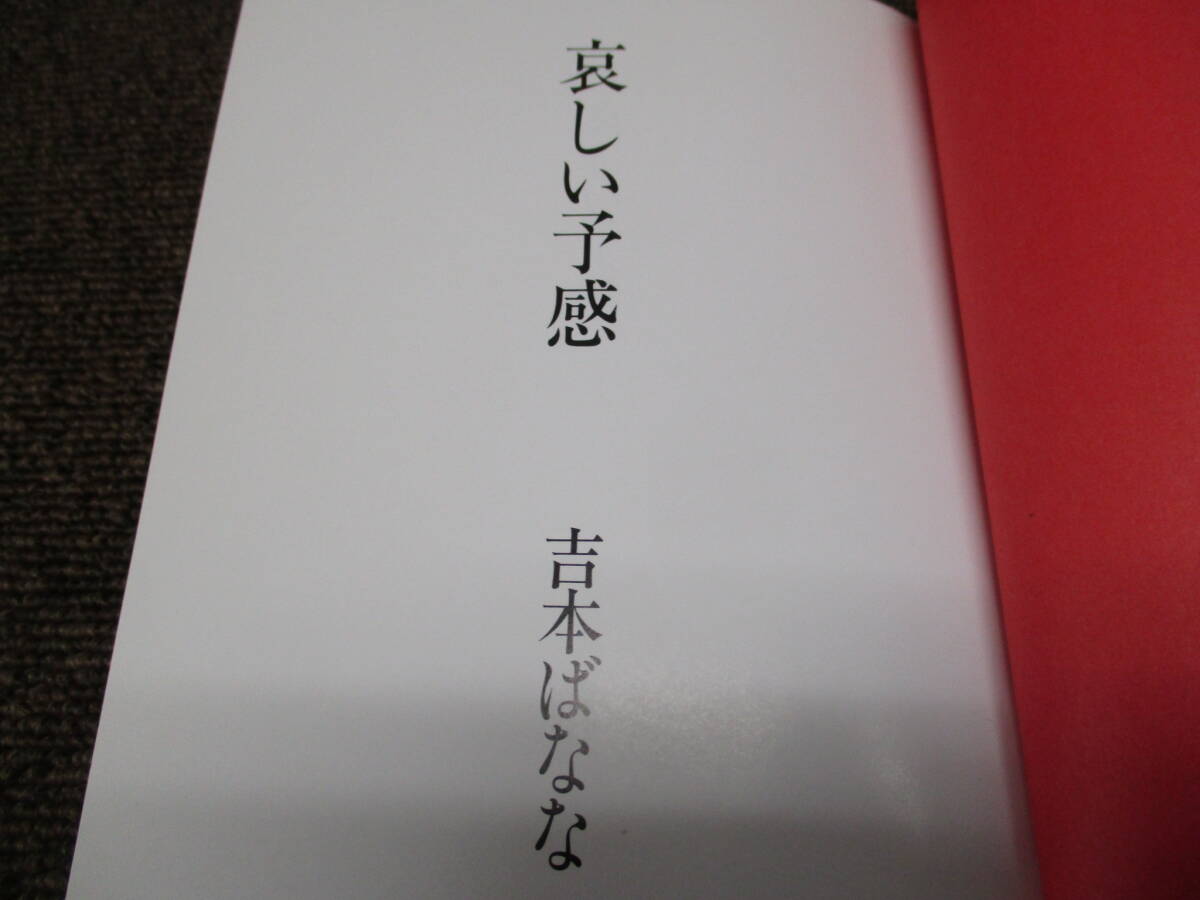 哀しい予感
吉本ばなな